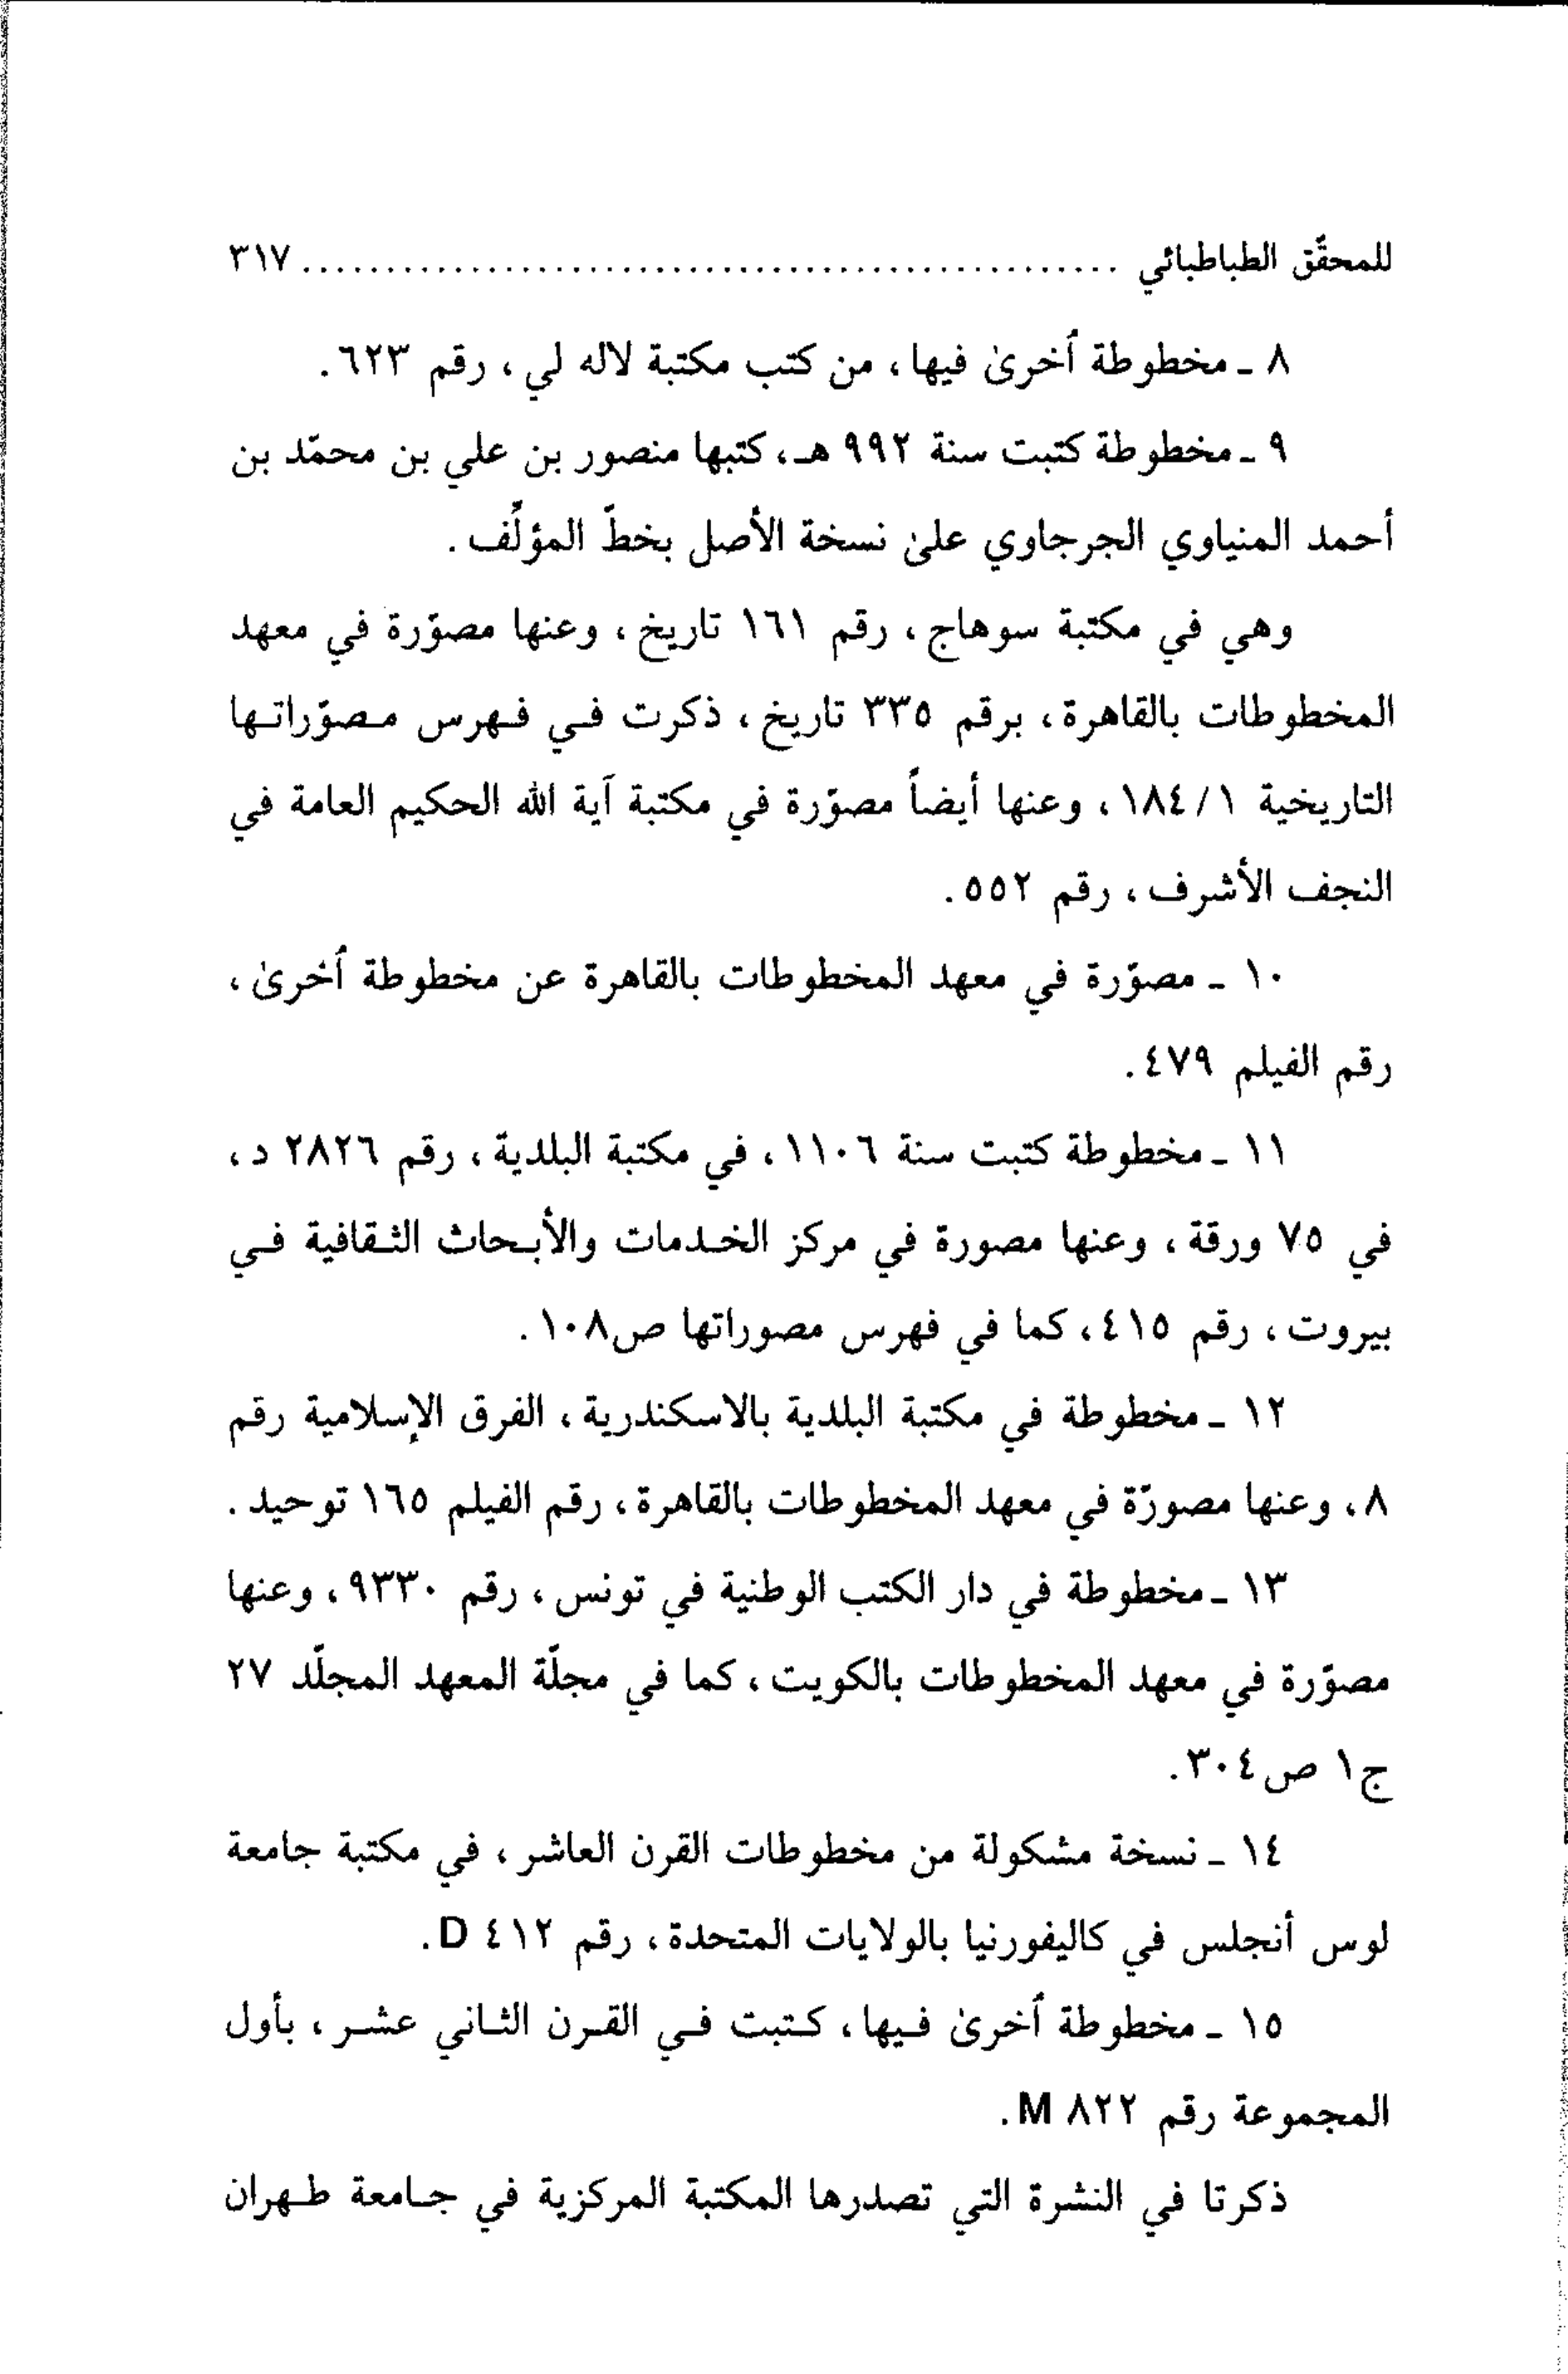 للمحقّق الطباطبائي ................................................ ٣١٧
٨ ـ مخطوطة أُخرىٰ فيها ، من كتب مكتبة لاله لي ، رقم ٦٢٣ .
٩ ـ مخطوطة كتبت سنة ٩٩٢ هـ ، كتبها منصور بن علي بن محمّد بن
أحمد المنياوي الجرجاوي علىٰ نسخة الأصل بخطّ المؤلِّف .
وهي في مكتبة سوهاج ، رقم ١٦١ تاريخ ، وعنها مصوّرة في معهد
المخطوطات بالقاهرة ، برقم ٣٣٥ تاريخ ، ذكرت في فهرس مصوّراتها
التاريخية ١ / ١٨٤ ، وعنها أيضاً مصوّرة في مكتبة آية الله الحكيم العامة في
النجف الأشرف ، رقم ٥٥٢ .
١٠ ـ مصوّرة في معهد المخطوطات بالقاهرة عن مخطوطة أُخرىٰ ،
رقم الفيلم ٤٧٩ .
١١ ـ مخطوطة كتبت سنة ١١٠٦ ، في مكتبة البلدية ، رقم ٢٨٢٦ د ،
في ٧٥ ورقة ، وعنها مصورة في مركز الخدمات والأبحاث الثقافية في
بيروت ، رقم ٤١٥ ، كما في فهرس مصوراتها ص١٠٨ .
١٢ ـ مخطوطة في مكتبة البلدية بالاسكندرية ، الفرق الإسلامية رقم
٨ ، وعنها مصورّة في معهد المخطوطات بالقاهرة ، رقم الفيلم ١٦٥ توحيد .
١٣ ـ مخطوطة في دار الكتب الوطنية في تونس ، رقم ٩٣٣٠ ، وعنها
مصوّرة في معهد المخطوطات بالكويت ، كما في مجلّة المعهد المجلّد ٢٧
ج١ ص٣٠٤ .
١٤ ـ نسخة مشكولة من مخطوطات القرن العاشر ، في مكتبة جامعة
لوس أنجلس في كاليفورنيا بالولايات المتحدة ، رقم D ٤١٢ .
١٥ ـ مخطوطة أُخرىٰ فيها ، كتبت في القرن الثاني عشر ، بأول
المجموعة رقم M ٨٢٢ .
ذكرتا في النشرة التي تصدرها المكتبة المركزية في جامعة طهران